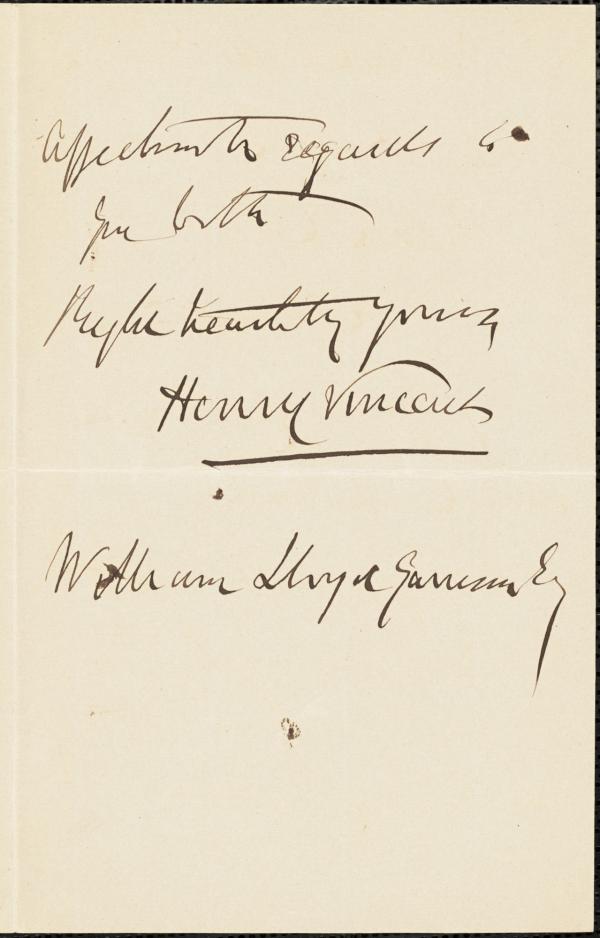 Affectionate regards to
you both
Right heartily yours,
Henry Vincent
William Lloyd Garrison Esq